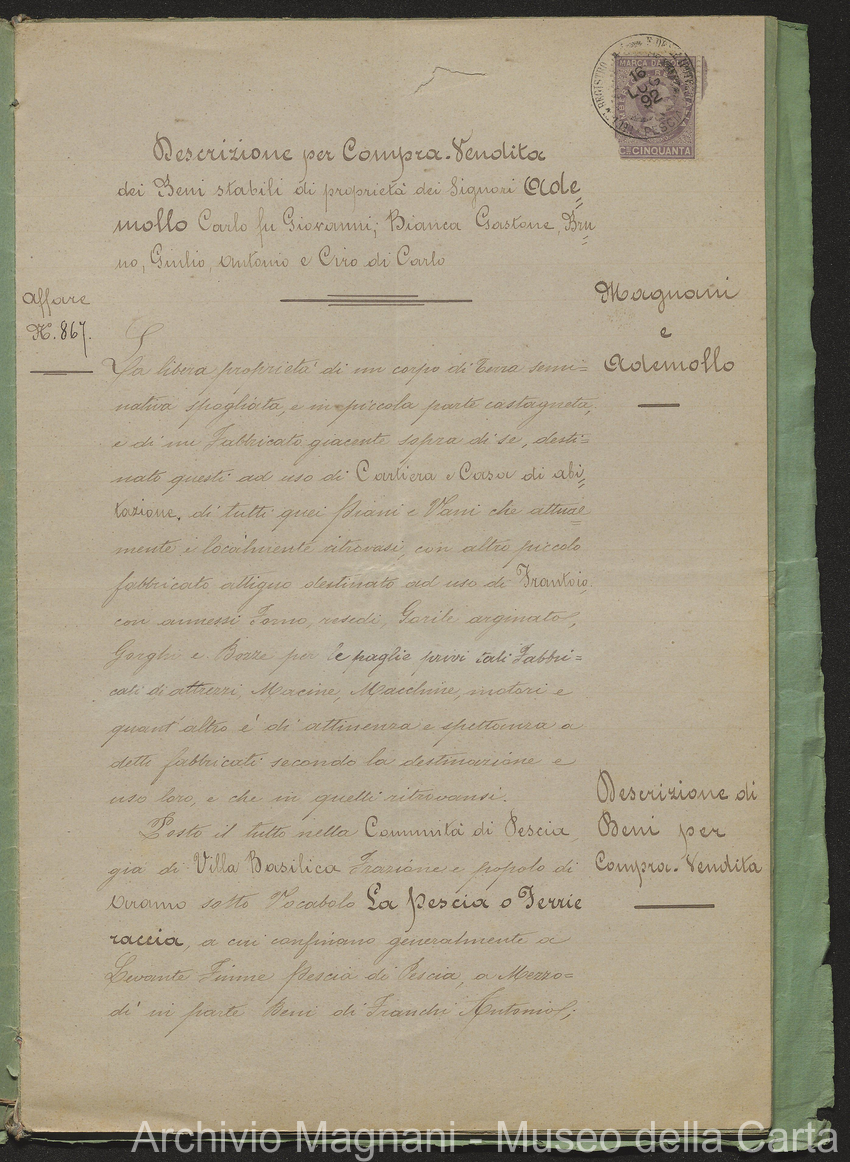 MARCA DA BOLLO
16
LUG
92
Ct. CINQUANTA
Descrizione per Compra-Vendita
dei Beni stabili di proprietà dei Signori Ade=
mollo Carlo fu Giovanni; Bianca Gastone, Bru=
no, Giulio, Antonio e Ciro di Carlo
Affare
N. 867.
Magnani
e
Ademollo
La libera proprietà di un corpo di Terra semi=
nativa spogliata, e in piccola parte castagneta,
e di un Fabbricato giacente sopra di se, desti=
nato questi ad uso di Cartiera e Casa di abi=
tazione, di tutti quei Piani e Vani che attual=
mente e localmente ritrovasi, con altro piccolo
fabbricato attiguo destinato ad uso di Frantoio,
con annessi Forno, resedi, Gorile arginato,
Gorghi e Bozze per le paglie privi tali Fabbri=
cati di attrezzi, Macine, Macchine, motori e
quant'altro è di attinenza e spettanza a
detti fabbricati secondo la destinazione e
uso loro, e che in quelli ritrovansi.
Posto il tutto nella Comunità di Pescia,
già di Villa Basilica Frazione e popolo di
Aramo sotto Vocabolo La Pescia o Ferrie
raccia, a cui confinano generalmente a
Levante Fiume Pescia di Pescia, a Mezzo=
dì in parte Beni di Franchi Antonio;
Descrizione di
Beni per
Compra-Vendita
Archivio Magnani - Museo della Carta